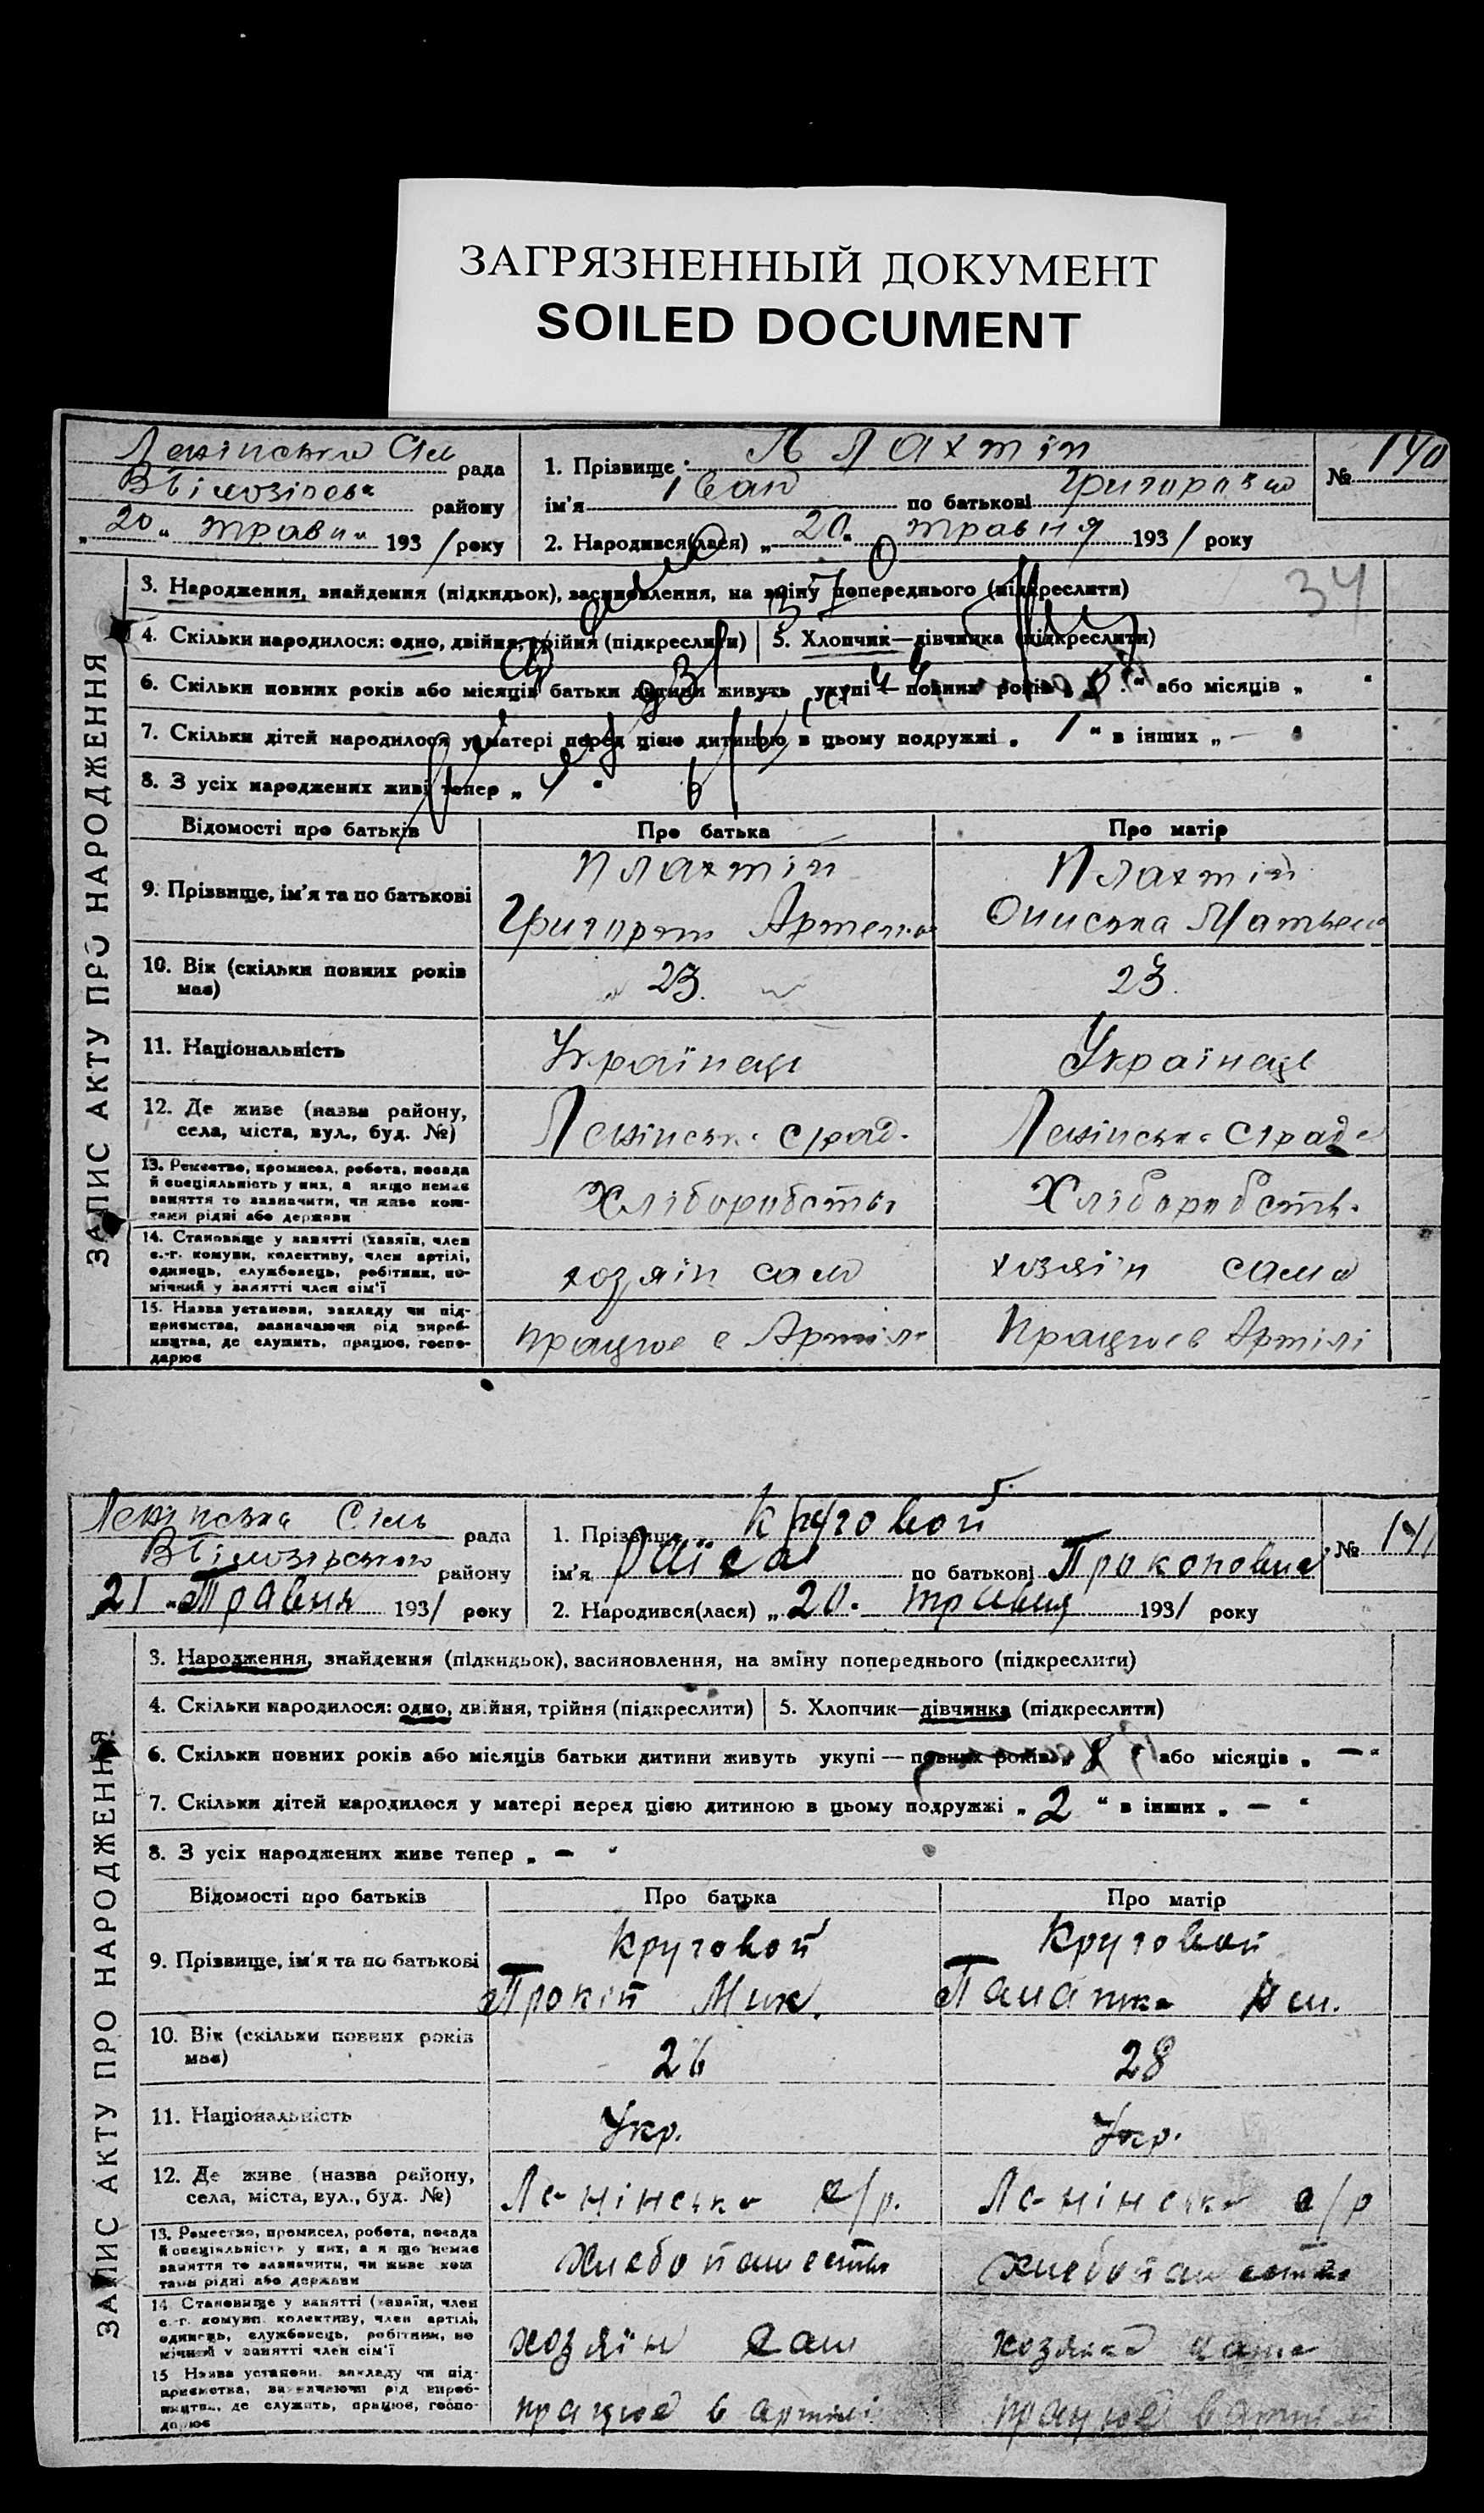 ЗАГРЯЗНЕННЫЙ ДОКУМЕНТ
SOILED DOCUMENT
рада
району
„20“ 1931 року
1. Прізвище Плахтій
ім'я Іван по батькові
2. Народився(лася) „20“ травня 1931 року
№ 140
34
ЗАПИС АКТУ ПРО НАРОДЖЕННЯ
3. Народження, знайдення (підкидьок), засиновлення, на зміну попереднього (підкреслити)
4. Скільки народилося: одно, двійня, трійня (підкреслити) 5. Хлопчик—дівчинка (підкреслити)
6. Скільки повних років або місяців батьки дитини живуть укупі — повних років або місяців „ “
7. Скільки дітей народилося у матері перед цією дитиною в цьому подружжі „ 1 “ в інших „ — “
8. З усіх народжених живі тепер „ “
Відомості про батьків Про батька Про матір
9. Прізвище, ім'я та по батькові
Плахтій Плахтій
Ониська
10. Вік (скільки повних років має) 23. 23.
11. Національність Українець Українець
12. Де живе (назва району,
села, міста, вул., буд. №)
13. Ремество, промисел, робота, посада
й спеціяльність у них, а якщо немає
заняття то зазначити, чи живе кош-
тами рідні або держави
14. Становище у занятті (хазяїн, член
с.-г. комуни, колективу, член артілі,
одинець, службовець, робітник, по-
мічний у занятті член сім'ї
хозяін сам хозяін сама
15. Назва установи, закладу чи під-
приємства, зазначаючи рід вироб-
ництва, де служить, працює, госпо-
дарює
працює в Артілі Працює в Артілі
Ленінська Сіль рада
району
21 „Травня 1931 року
1. Прізвище Круговой
ім'я Раїса по батькові Прокоповна
2. Народився(лася) „20. травня 1931 року
№ 141
ЗАПИС АКТУ ПРО НАРОДЖЕННЯ
3. Народження, знайдення (підкидьок), засиновлення, на зміну попереднього (підкреслити)
4. Скільки народилося: одно, двійня, трійня (підкреслити) 5. Хлопчик—дівчинка (підкреслити)
6. Скільки повних років або місяців батьки дитини живуть укупі — повних років або місяців „ — “
7. Скільки дітей народилося у матері перед цією дитиною в цьому подружжі „ 2 “ в інших „ — “
8. З усіх народжених живе тепер „ — “
Відомості про батьків Про батька Про матір
9. Прізвище, ім'я та по батькові
Круговой Круговой
Прокіп Мик.
10. Вік (скільки повних років має) 26 28
11. Національність Укр. Укр.
12. Де живе (назва району,
села, міста, вул., буд. №)
Ленінська с/р. Ленінська с/р
13. Ремество, промисел, робота, посада
й спеціяльність у них, а якщо немає
заняття то зазначити, чи живе кош
тами рідні або держави
14. Становище у занятті (хазяїн, член
с.-г. комуни, колективу, член артілі,
одинець, службовець, робітник, по
мічний у занятті член сім'ї
хозяїн сам
15 Назва установи, закладу чи під-
приємства, зазначаючи рід вироб-
ництва, де служить, працює, госпо-
дарює
працює в артілі працює в артілі